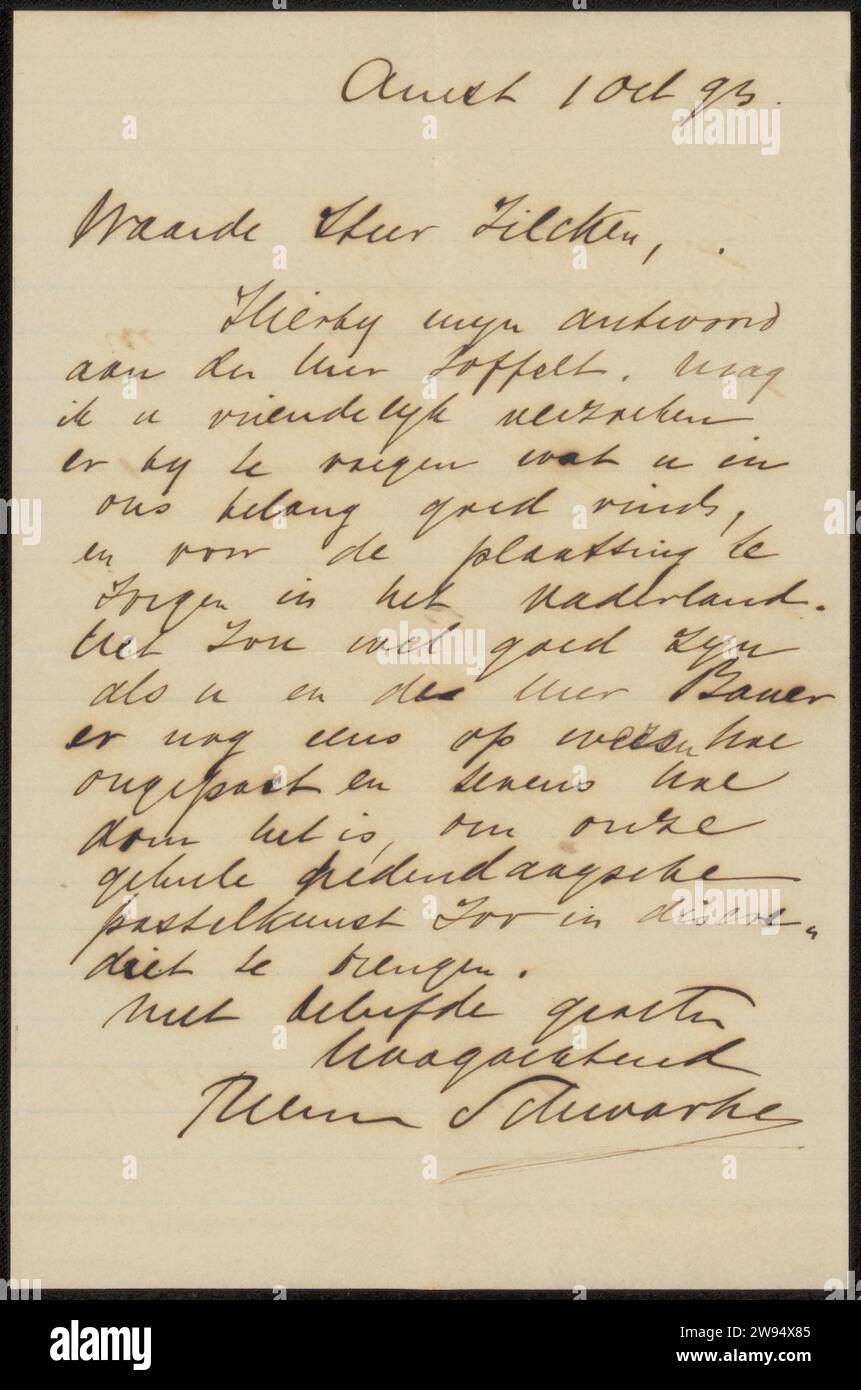 Amst 1 Oct 93.
Waarde Heer Zilcken,
Hierby myn antwoord
aan den heer Loffelt. Mag
ik u vriendelyk verzoeken
er by te voegen wat u in
ons belang goed vindt,
en voor de plaatsing te
zorgen in het vaderland.
Het zou wel goed zyn
als u en de heer Bauer
er nog eens op wezen hoe
ongepast en tevens hoe
dom het is, om onze
geheele hedendaagsche
pastelkunst zoo in discre„
diet te brengen.
Met beleefde groeten
Hoogachtend
Therese Schwartze
alamy
alamy
Image ID: 2W94X85
www.alamy.com